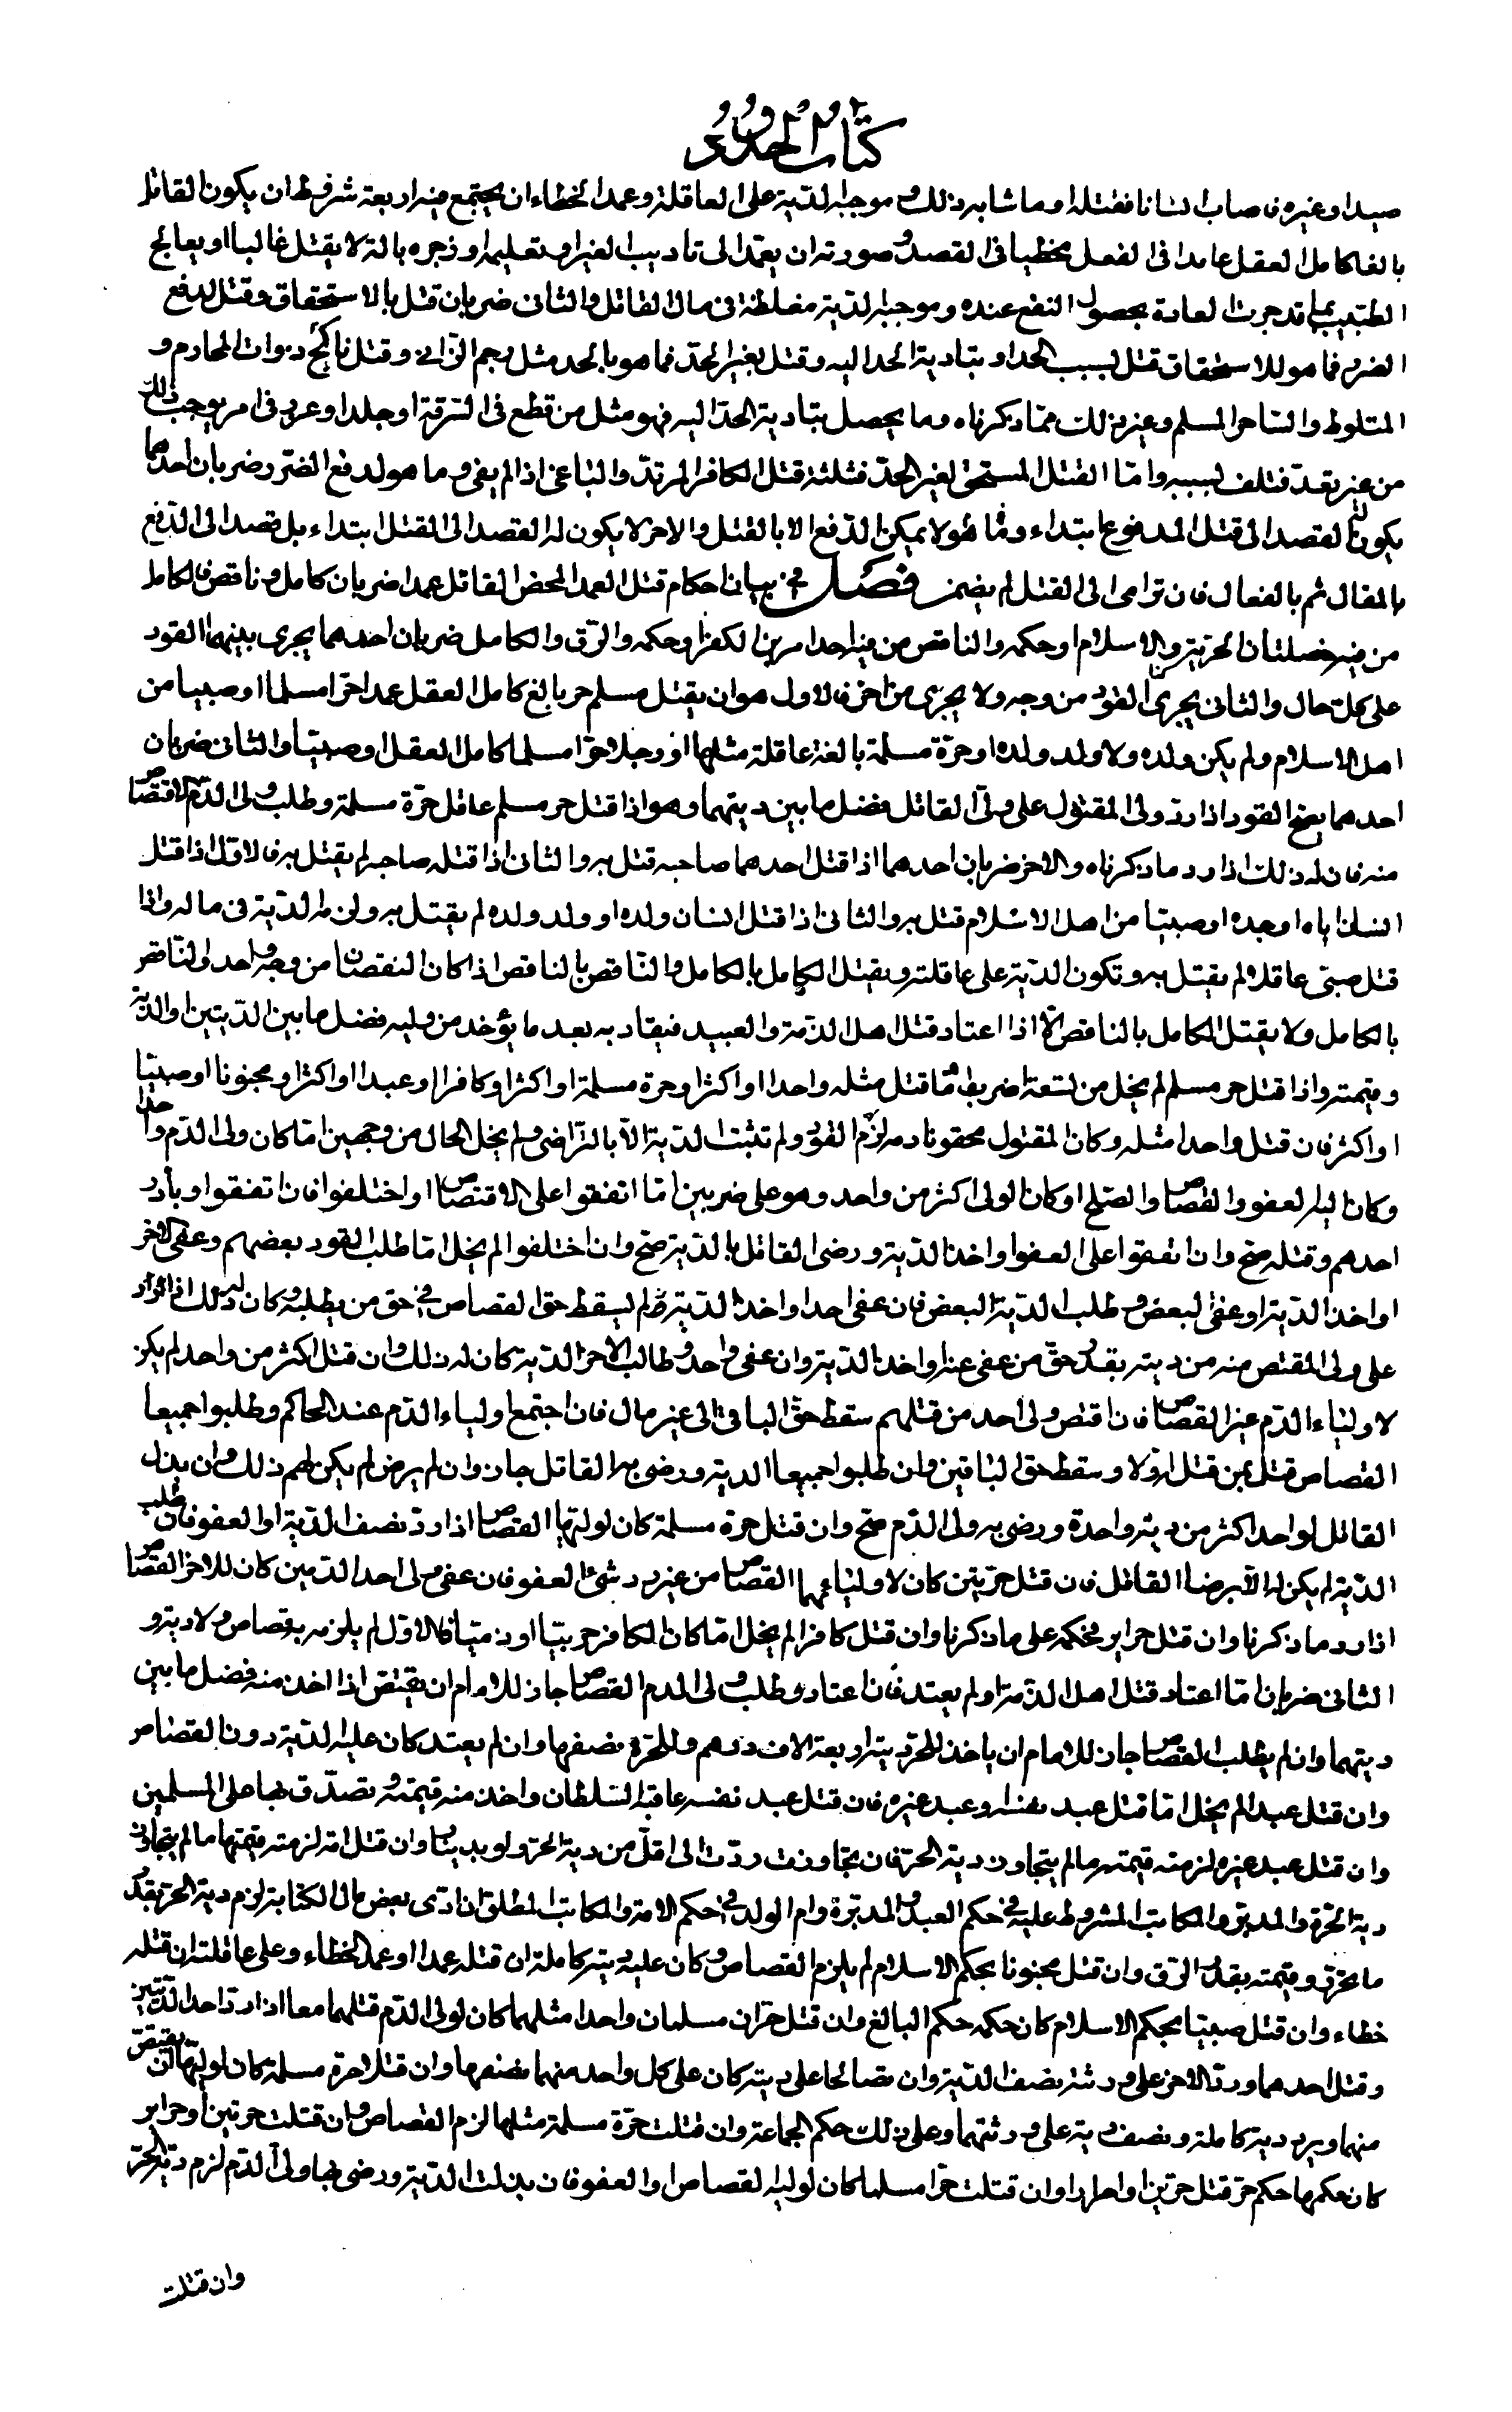 كتاب الحدود
صيدا وغيره فاصاب انسانا فقتله او ما شابه ذلك و موجبه الدية على العاقلة وعمد الخطاء ان يجتمع فيه اربعة شروط ان يكون القاتل
بالغا كامل العقل عامدا فى الفعل مخطيا فى القصد و صورته ان يعمد الى تاديب الغير او تعليمه او زجره بالة لا يقتل غالبا او يعالج
الطبيب بما قد جرت العادة بحصول النفع عنده وموجبه الدية مغلظة فى مال القاتل والثانى ضربان قتل بالاستحقاق وقتل لدفع
الضرر فما هو للاستحقاق قتل بسبب الحد او بتادية الحد اليه وقتل بغير الحد فما هو بالحد مثل رجم الزانى وقتل ناكح ذوات المحارم و
المتلوط والساحر المسلم وغير ذلك مما ذكرناه وما يحصل بتادية الحد اليه فهو مثل من قطع فى السرقة او جلد او عزر فى امر يوجب ذلك
من غير تعد فتلف بسببه واما القتل المستحق لغير الحد فثلثة قتل الكافر المرتد والباغى اذا لم يفئ و ما هو لدفع الضرر ضربان احدهما
يكون له القصد الى قتل المدفوع ابتداء وهو ما لا يمكن الدفع الا بالقتل والاخر لا يكون له القصد الى القتل ابتداء بل قصد الى الدفع
بالمقال ثم بالفعال فان ترامى الى القتل لم يضمن فصل فى بيان احكام قتل العمد المحض القاتل عمدا ضربان كامل و ناقص فالكامل
من فيه خصلتان الحرية والاسلام او حكمه والناقص من فيه احد امرين الكفر او حكمه والرق والكامل ضربان احدهما يجرى بينهما القود
على كل حال والثانى يجرى القود من وجه ولا يجرى من اخر فالاول هو ان يقتل مسلم حر بالغ كامل العقل عمدا حرا مسلما او صبيا من
اهل الاسلام ولم يكن ولده ولا ولد ولده او حرة مسلمة بالغة عاقلة مثلها او رجلا حرا مسلما كامل العقل او صبيا والثانى ضربان
احدهما يصح القود اذا رد ولى المقتول على ولى القاتل فضل ما بين ديتهما وهو اذا قتل حر مسلم عاقل حرة مسلمة وطلب ولى الدم الاقتصاص
منه فان له ذلك اذا رد ما ذكرناه والاخر ضربان احدهما اذا قتل احدهما صاحبه قتل به والثانى اذا قتله صاحبه لم يقتل به فالاول اذا قتل
انسان اباه او جده او صبيا من اهل الاسلام قتل به والثانى اذا قتل انسان ولده او ولد ولده لم يقتل به ولزمه الدية فى ماله واذا
قتل صبى عاقلا لم يقتل به وتكون الدية على عاقلته ويقتل الكامل بالكامل والناقص بالناقص اذا كان النقصان من وجه واحد والناقص
بالكامل ولا يقتل الكامل بالناقص الا اذا اعتاد قتل اهل الذمة والعبيد فيقاد به بعد ما يؤخذ من وليه فضل ما بين الديتين والدية
وقيمته واذا قتل حر مسلم لم يخل من تسعة اضرب اما قتل مثله واحدا او اكثر او حرة مسلمة او اكثر او كافرا او عبدا او اكثر او مجنونا او صبيا
او اكثر فان قتل واحدا مثله وكان المقتول محقونا دمه لزم القود ولم تثبت الدية الا بالتراضى ولم يخل الحال من وجهين اما كان ولى الدم واحدا
وكان اليه العفو والقصاص والصلح او كان الولى اكثر من واحد وهو على ضربين اما اتفقوا على الاقتصاص او اختلفوا فان اتفقوا وبادر
احدهم وقتله صح وان اتفقوا على العفو او اخذ الدية ورضى القاتل بالدية صح وان اختلفوا لم يخل اما طلب القود بعضهم وعفى الاخر
او اخذ الدية او عفى البعض و طلب الدية البعض فان عفى احد او اخذ الدية لم يسقط حق القصاص فى حق من يطلبه وكان له ذلك اذا رد
على ولى المقتص منه من ديته بقدر حق من عفى عنه او اخذ الدية وان عفى واحد و طالب الاخر الدية كان له ذلك وان قتل اكثر من واحد لم يكن
لاولياء الدم غير القصاص فان اقتص ولى احد من قتلهم سقط حق الباقى الى غير مال فان اجتمع اولياء الدم عند الحاكم وطلبوا جميعا
القصاص قتل بمن قتل اولا وسقط حق الباقين وان طلبوا جميعا الدية ورضى بها القاتل جاز وان لم يرض لم يكن لهم ذلك وان بذل
القاتل لواحد اكثر من دية واحدة ورضى به ولى الدم صح وان قتل حرة مسلمة كان لوليها القصاص اذا رد نصف الدية او العفو فان طلب
الدية لم يكن له الا برضا القاتل فان قتل حرتين كان لاوليائهما القصاص من غير رد شئ او العفو فان عفى ولى احد الدمين كان للاخر القصاص
اذا رد ما ذكرنا وان قتل حراير فحكمه على ما ذكرنا وان قتل كافرا لم يخل اما كان الكافر حربيا او ذميا فالاول لم يلزمه به قصاص ولا دية و
الثانى ضربان اما اعتاد قتل اهل الذمة او لم يعتد فان اعتاد وطلب ولى الدم القصاص جاز للامام ان يقتص اذا اخذ منه فضل ما بين
ديتهما وان لم يطلب القصاص جاز للامام ان ياخذ للحر دية اربعة الاف درهم وللحرة نصفها وان لم يعتد كان عليه الدية دون القصاص
وان قتل عبدا لم يخل اما قتل عبد نفسه او عبد غيره فان قتل عبد نفسه عاقبه السلطان واخذ منه قيمته و تصدق بها على المسلمين
وان قتل عبد غيره لزمته قيمته ما لم يتجاوز دية الحر فان تجاوزت ردت الى اقل من دية الحر ولو بدينار وان قتل امة لزمته قيمتها ما لم يتجاوز
دية الحرة والمدبر والمكاتب المشروط عليه فى حكم العبد والمدبرة وام الولد فى حكم الامة والمكاتب المطلق ان ادى بعض مال الكتابة لزم دية الحر بقدر
ما تحرر وقيمته بقدر الرق وان قتل مجنونا بحكم الاسلام لم يلزم القصاص و كان عليه دية كاملة ان قتله عمدا او عمد الخطاء وعلى عاقلته ان قتله
خطاء وان قتل صبيا بحكم الاسلام كان حكمه حكم البالغ وان قتل حران مسلمان واحدا مثلهما كان لولى الدم قتلهما معا اذا رد احد الديتين
وقتل احدهما ورد الاخر على ورثته نصف الدية وان تصالحا على دية كان على كل واحد منهما نصفها وان قتلا حرة مسلمة كان لوليها ان يقتص
منهما ويرد دية كاملة ونصف دية على ورثتهما وعلى ذلك حكم الجماعة وان قتلت حرة مسلمة مثلها لزم القصاص وان قتلت حرتين او حراير
كان حكمها حكم حر قتل حرين او احرارا وان قتلت حرا مسلما كان لوليه القصاص او العفو فان بذلت الدية ورضى بها ولى الدم لزم دية الحر
وان قتلت